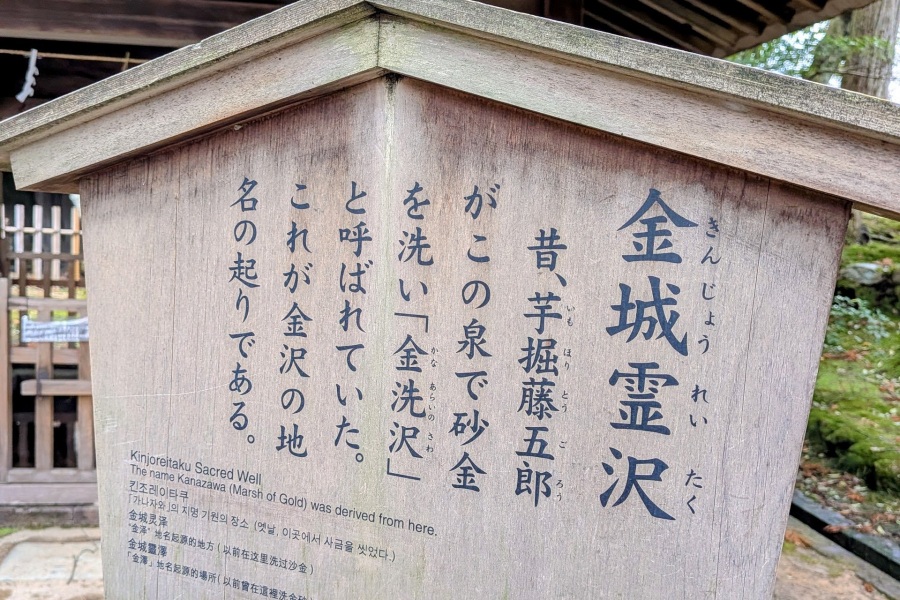 金城霊沢
きんじょうれいたく
昔、芋掘藤五郎
いもほりとうごろう
がこの泉で砂金
を洗い「金洗沢」
かなあらいのさわ
と呼ばれていた。
これが金沢の地
名の起りである。
Kinjoreitaku Sacred Well
The name Kanazawa (Marsh of Gold) was derived from here.
킨조레이타쿠
「가나자와」의 지명 기원의 장소 (옛날, 이곳에서 사금을 씻었다.)
金城灵泽
"金泽" 地名起源的地方 ( 以前在这里洗过沙金 )
金城靈澤
「金澤」地名起源的場所 ( 以前曾在這裡洗金砂